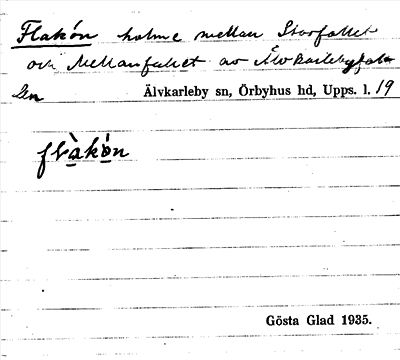 Flakön holme mellan Storfallet
och Mellanfallet av Älvkarlebyfal-
len Älvkarleby sn, Örbyhus hd, Upps. l. 19
flàkö̀n
Gösta Glad 1935.